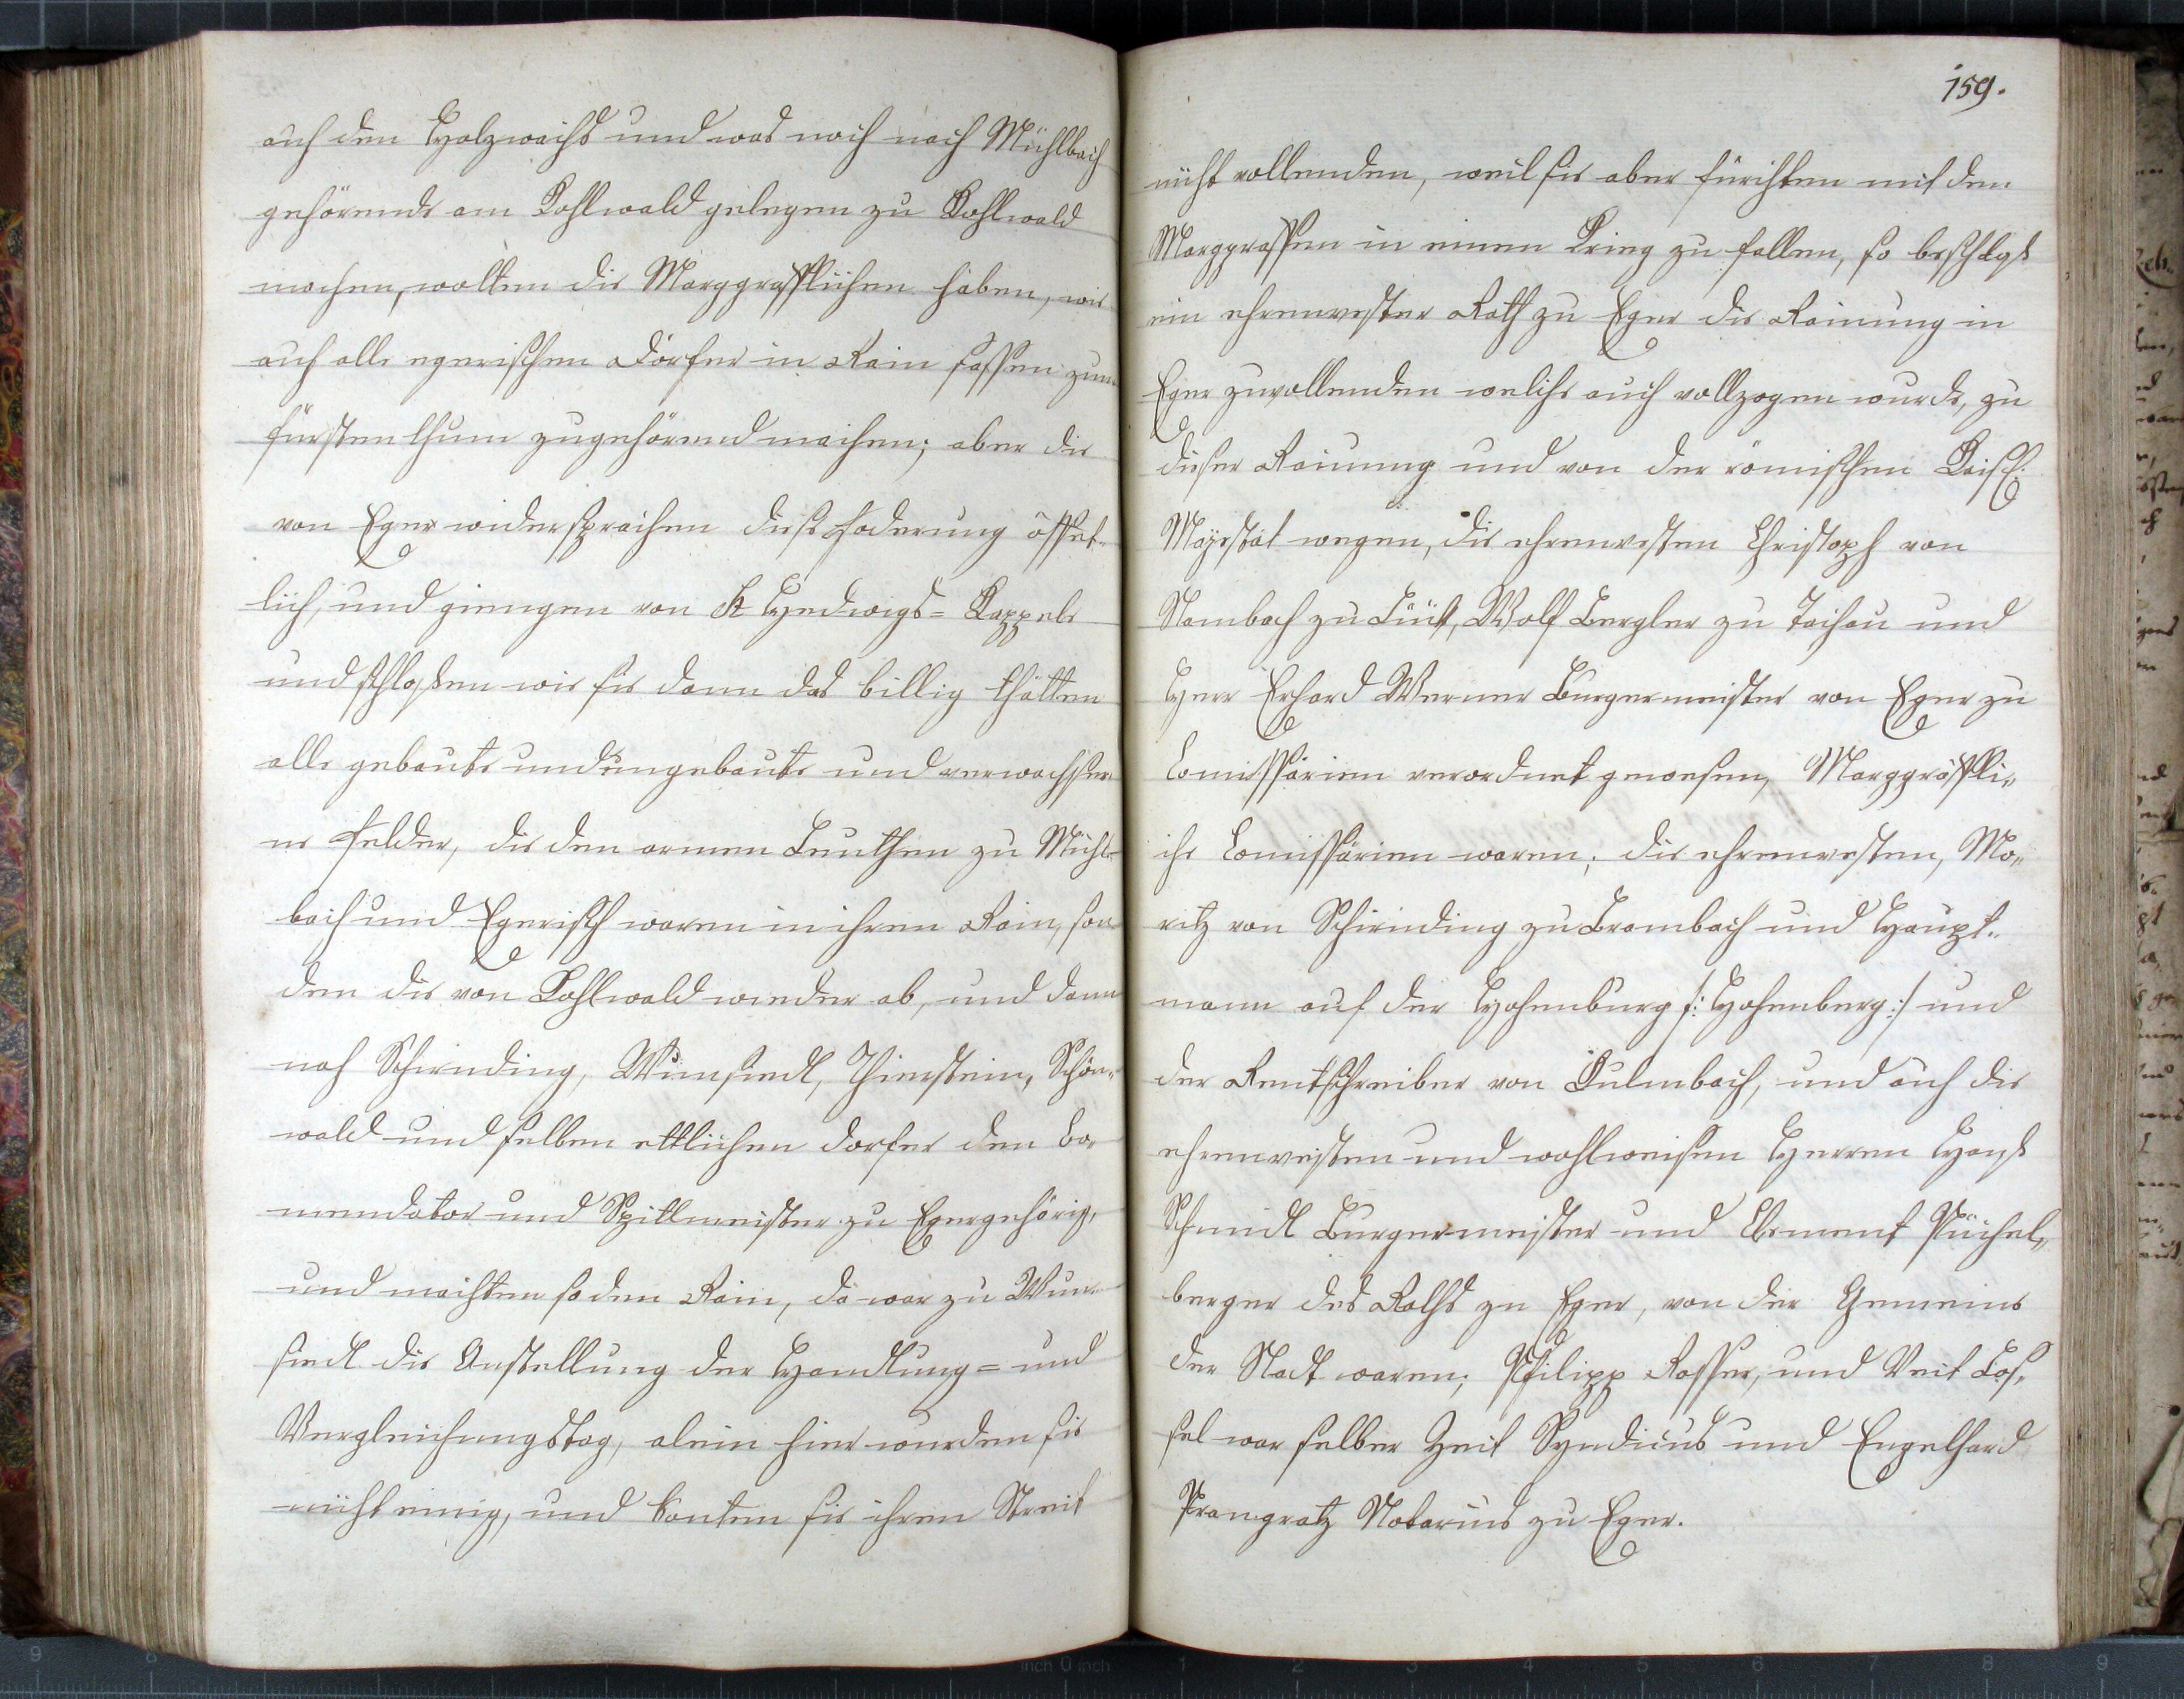 auch den Holzwachs und was noch nach Mühlbach
gehörende am Kohlwald gelegen zu Kohlwald
machen, wolten die Marggrafflichen haben, wie
auch alle egerischen Dörfer in Rain fassen zum
fürstenthum zugehörend machen; aber die
von Eger widersprachen diese Foderung öffet-
lich, und giengen von St Hedwigs= Kappele
und schloßen wie sie dann das billig thätten
alle gebaute und ungebaute und verwachsse-
ne Felder, die den armen Leuthen zu Mühl-
bach und Egerisch waren in ihren Rain, son
dern die von Kohlwald wieder ab, und dann
nach Schirnding, Wunsiedl, Thierstein, Schön-
wald und selben ettlichen dorfer den Co-
mendator und Spittlmeister zu Eger gehörig,
und machten so den Rain, da war zu Wun-
siedl die Anstellung der Handlung= und
Vergleichungstag, alein hier wurden sie
nicht einig, und konten sie ihren Streit
159.
nicht vollenden, weil sie aber fürchten mit den
Marggraffen in einen Krieg zu fallen, so
ein ehrenvester Rath zu Eger die Rainung in
Eger zuvollenden welche auch vollzogen wurde, zu
dieser Rainung und von der römischen Kaisl:
Mayestät wegen, die ehrenvesten Christoph von
zu Wolf Bergler zu Tachau und
Herr Erhard Werner Burgermeister von Eger zu
Comissärien verordnet gewesen, Marggräffli-
che Comissärien waren; die ehrenvesten, Mo-
ritz von Schirnding zu Brambach und Haupt-
mann auf der Hohenburg /: Hohenberg :/ und
der Rentschreiber von Culmbach, und auch die
ehrenvesten und wohlweisen Herren Hanß
Schmidl Burgermeister und Clement Püchel-
berger des Raths zu Eger, von der Gemeine
der Stadt waren; Philipp Rosser, und Veit Los-
sel war selber Zeit Syndicus und Engelhard
Prangratz Notarius zu Eger.